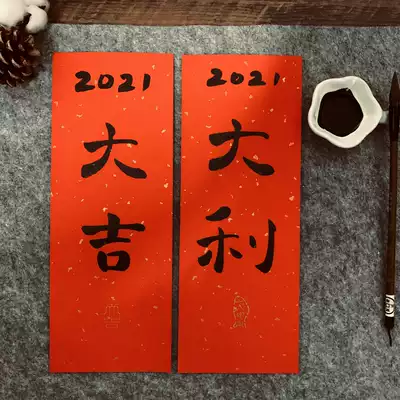 2021
大
吉
2021
大
利